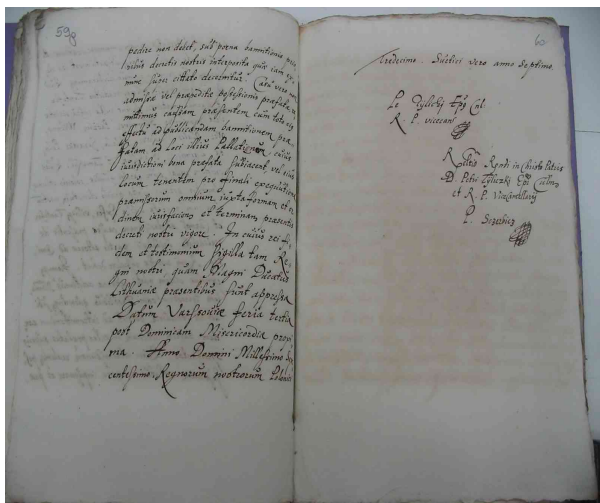 59
pedire non debet, sub poena bannitionis
ribus decretis nostris interposita quam eam
nunc super citato decernitur. Casu vero non
admissae vel praepeditae possessionis praefatae re
mittimus causam praesentem cum toto eius
effectu ad publicandam bannitionem prae
fatam ad loci illius Pallatinum cuius
iurisdictioni bona praefata subiacent, vel eius
locum tenentem pro finali executione
praemissorum omnium iuxta formam et or
dinem iurisfictionis et terminam praesentis
decreti nostri vigore. In cuius rei fi
dem et testimonium Sigilla tam Re
gni nostri quam Magni Ducatus
Lithuaniae praesentibus sunt appressa
Datum Varssoviae feria tertia
post Dominicam Misericordia proxi
ma. Anno Domini Millesimo Sex
centesimo. Regnorum nostrorum Poloniae
60
Tredecimo. Suetici vero anno septimo.
Pe Tylickij Epus Cul.
R. P. vicecan
Rltio Rdndi in Christo Patris
D. Petri Tyliczki Epi Culmn
et R. P. Vicecancellarij
P. Sczerbicz